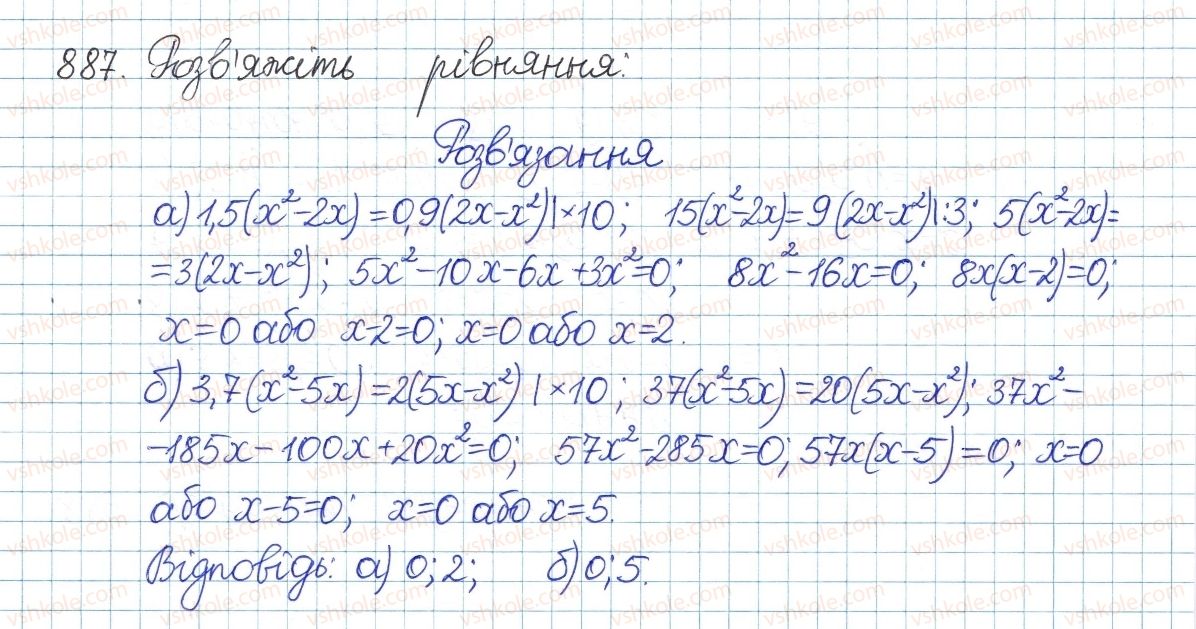 887. Розв'яжіть рівняння:
Розв'язання
а) 1,5(x²-2x)=0,9(2x-x²)|×10; 15(x²-2x)=9(2x-x²)|:3; 5(x²-2x)=
=3(2x-x²); 5x²-10x-6x+3x²=0; 8x²-16x=0; 8x(x-2)=0;
x=0 або x-2=0; x=0 або x=2.
б) 3,7(x²-5x)=2(5x-x²)|×10; 37(x²-5x)=20(5x-x²); 37x²-
-185x-100x+20x²=0; 57x²-285x=0; 57x(x-5)=0; x=0
або x-5=0; x=0 або x=5.
Відповідь: а) 0; 2; б) 0; 5.